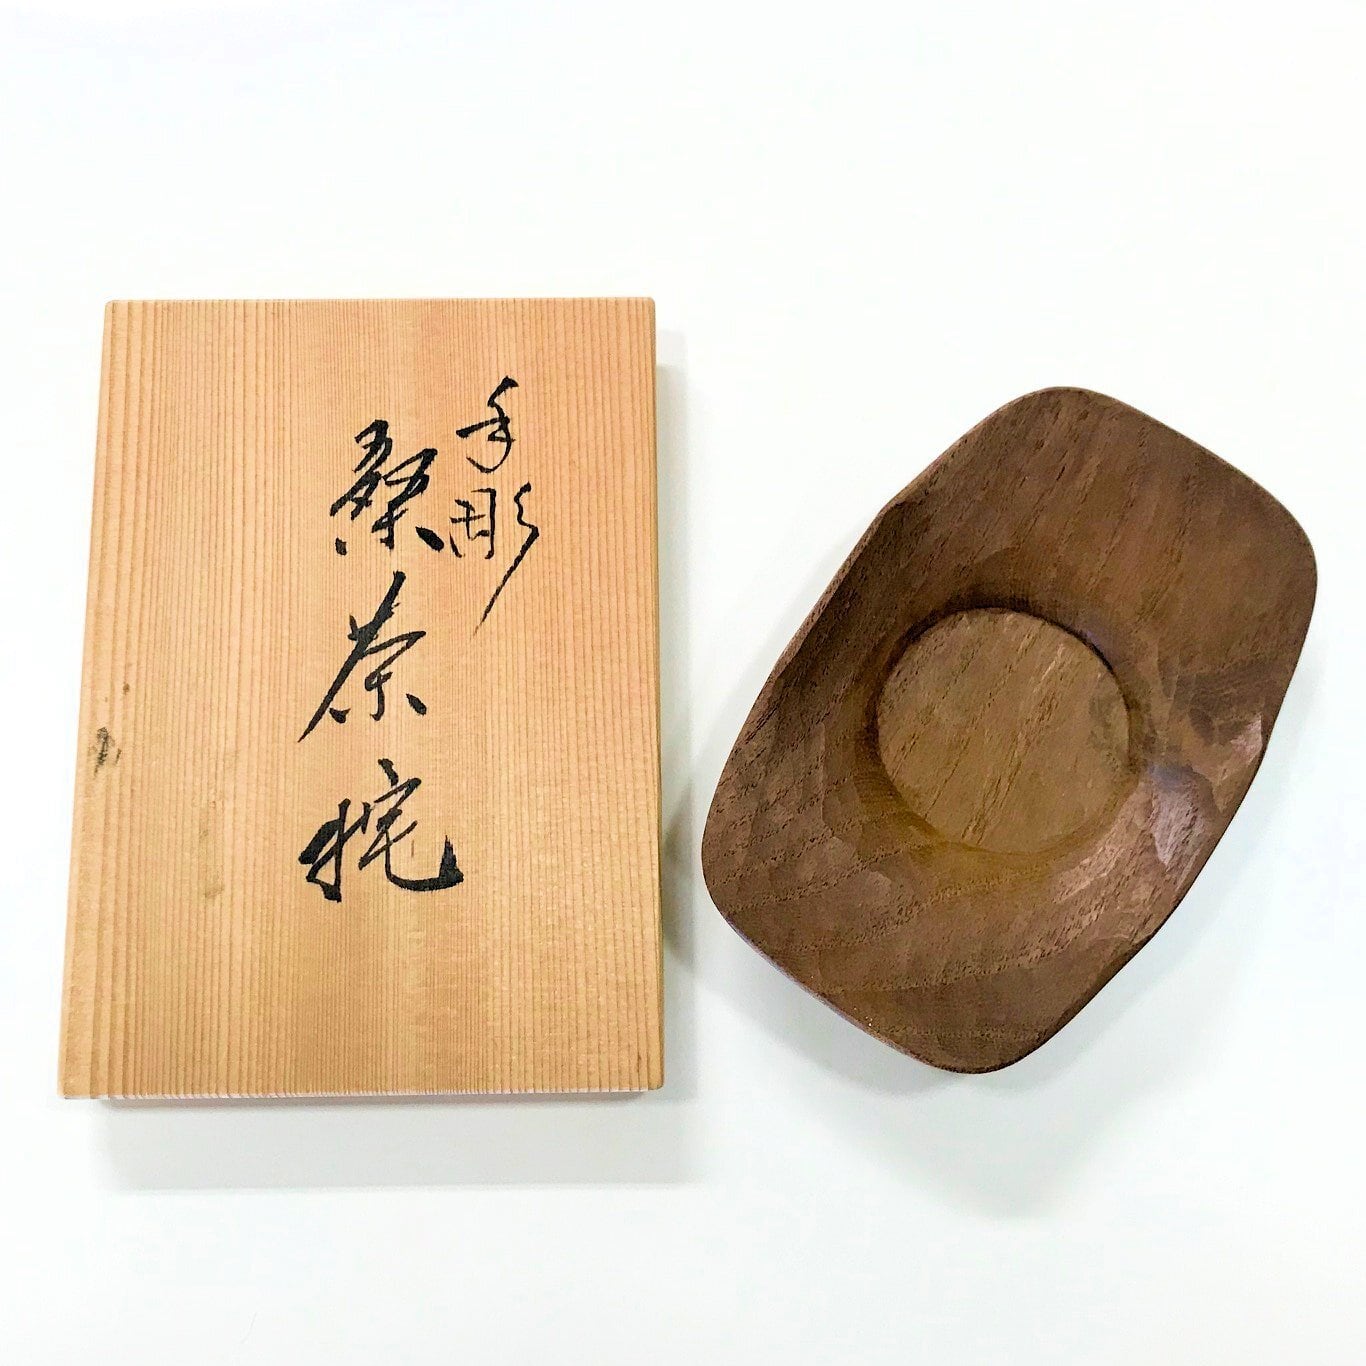 手彫
桑茶托